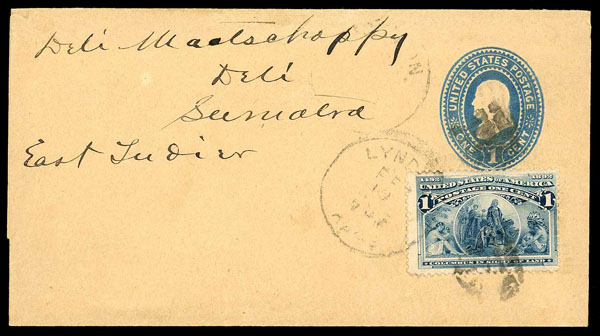 Deli Maatschappy
Deli
Sumatra
East Indies
UNITED STATES POSTAGE
ONE 1 CENT
LYND
1492 1892
UNITED STATES OF AMERICA
1 POSTAGE ONE CENT 1
COLUMBUS IN SIGHT OF LAND